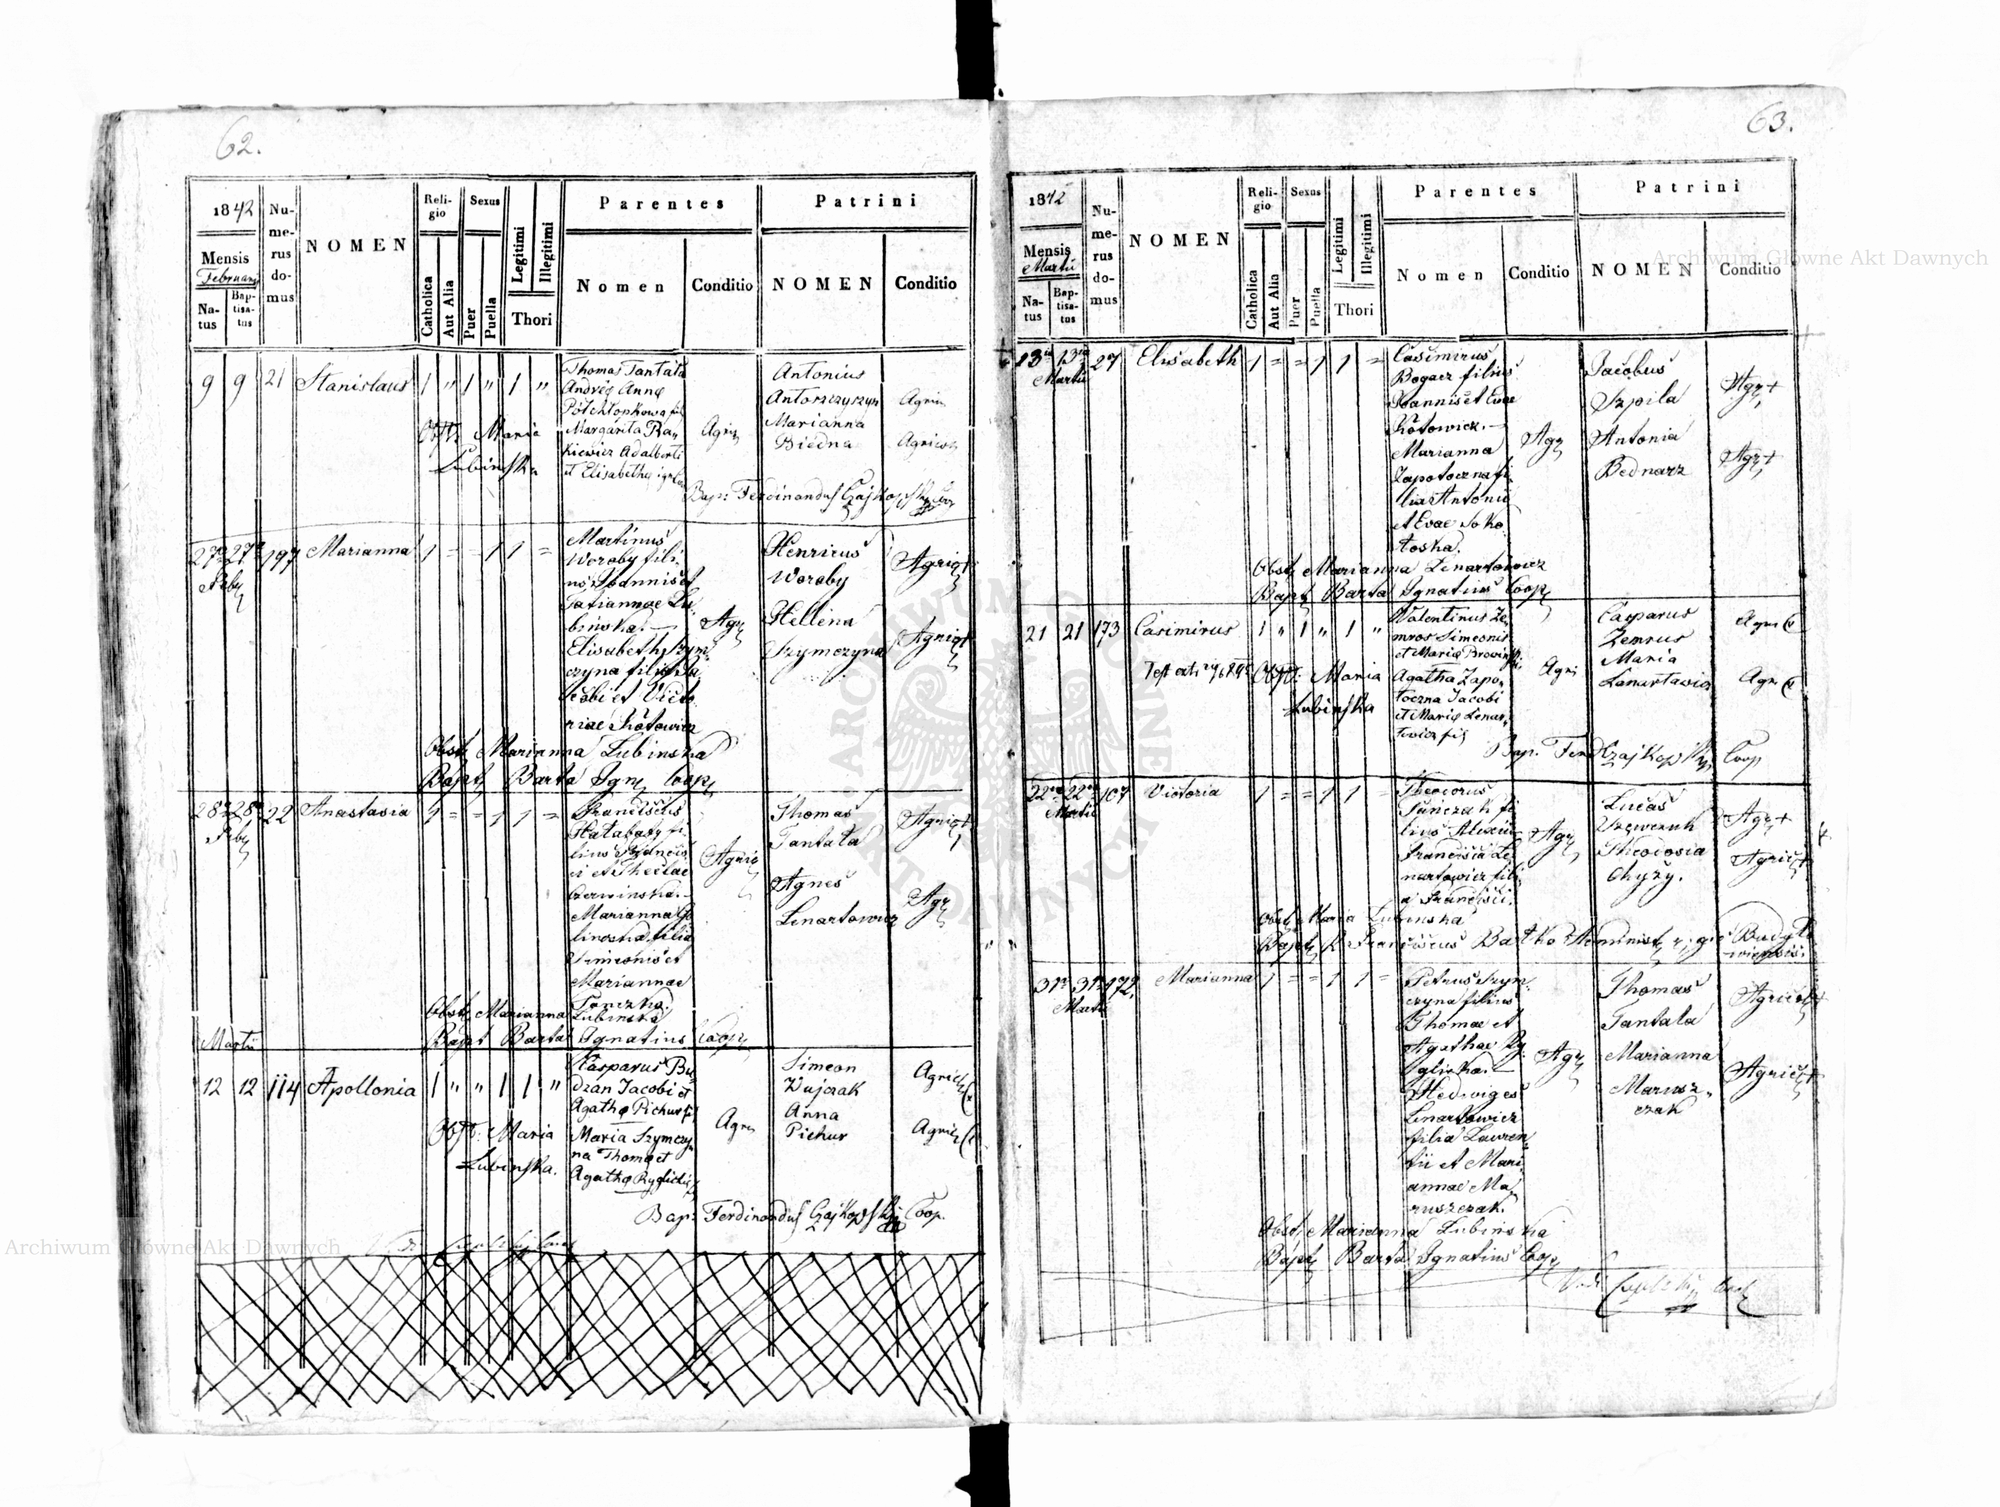 62.
1842
Mensis
Februarii
Natus
Baptisatus
Numerus domus
NOMEN
Religio
Catholica
Aut Alia
Sexus
Puer
Puella
Legitimi
Illegitimi
Thori
Parentes
Nomen
Conditio
Patrini
NOMEN
Conditio
9 9 21 Stanislaus 1 " 1 " 1 "
Thomas Tantala
Andreę Annę
Margarita Ra-
kiewicz Adalberti
et Elisabethę
Agri
Antonius
Antoszczyszyn
Marianna
Biedna
Agric
Agricol
Obst: Maria
Lubinska
Bap: Ferdinandus Czajkowski
27 27 197 Marianna 1 = = 1 1 =
Martinus
Woroby fili-
us Joannis et
Tatiannae Lu-
binska. —
Elisabeth Szym-
czyna filia Ja-
cobi et Victo-
riae Kotowicz
Agr
Henricus
Woroby
Hellena
Szymczyna
Agric +
Agric +
Obst Marianna Lubinska
Bapt Barta Ign Coop
28 28 22 Anastasia 1 = = 1 1 =
Franciscus
fi-
lius Francis-
ci et Theclae
Czerwinska. —
Marianna
filia
Simeonis et
Mariannae
Panczka
Agric
Thomas
Tantala
Agnes
Lenartowicz
Agric +
Agr
Obst Marianna Lubinska
Bapt Barta Ignatius Coop
Martii
12 12 114 Apollonia 1 " " 1 1 "
Kasparus Bu-
dzan Jacobi et
Agathę Pichur f
Maria Szymczy-
na Thomę et
Agathę Ryglicki
Agr
Simeon
Wujczak
Anna
Pichur
Agric
Agric
Obst: Maria
Lubinska.
Bap: Ferdinandus Czajkowski Coop.
63.
1842
Mensis
Martii
Natus
Baptisatus
Numerus domus
NOMEN
Religio
Catholica
Aut Alia
Sexus
Puer
Puella
Legitimi
Illegitimi
Thori
Parentes
Nomen
Conditio
Patrini
NOMEN
Conditio
13 13 27 Elisabeth 1 = = 1 1 =
Martii
Casimirus
Bogacz filius
Joannis et Evae
Kotowicz. —
Marianna
Zapotoczna fi-
lia Antonii
et Evae Soko-
toska.
Agr
Jacobus
Szpila
Antonia
Bednarz
Agr +
Agr +
Obst Marianna Lenartowicz
Bapt Barta Ignatius Coop
21 21 173 Casimirus 1 " 1 " 1 "
Valentinus Ze-
mros Simeonis
et Marię
Agatha Zapo-
toczna Jacobi
et Marię Lenar-
towicz fi
Agri
Casparus
Zemrus
Maria
Lenartowicz
Agri
Agri
Obst: Maria
Lubinska
Bap. Ferd Czajkowski Coop
22 22 107 Victoria 1 = = 1 1 =
Martii
Theodorus
Panczak fi-
lius Alexii
Francisca Le-
nartowicz fili-
a Francisci.
Agr
Lucas
Szewczuk
Theodosia
Chyzy.
Agr +
Agric +
Obst Maria Lubinska
Bapt R Franciscus Bartko Administ
31 31 172. Marianna 1 = = 1 1 =
Martii
Petrus Szym-
czyna filius
Thomae et
Agathae Ry-
glicka. —
Hedwiges
Lenartowicz
filia Lauren-
tii et Mari-
annae Ma-
ruszczak.
Agr
Thomas
Tantala
Marianna
Marusz-
czak
Agric +
Agric +
Obst Marianna Lubinska
Bapt Barta Ignatius Coop
Archiwum Główne Akt Dawnych
Archiwum Główne Akt Dawnych
ARCHIWUM GŁÓWNE AKT DAWNYCH